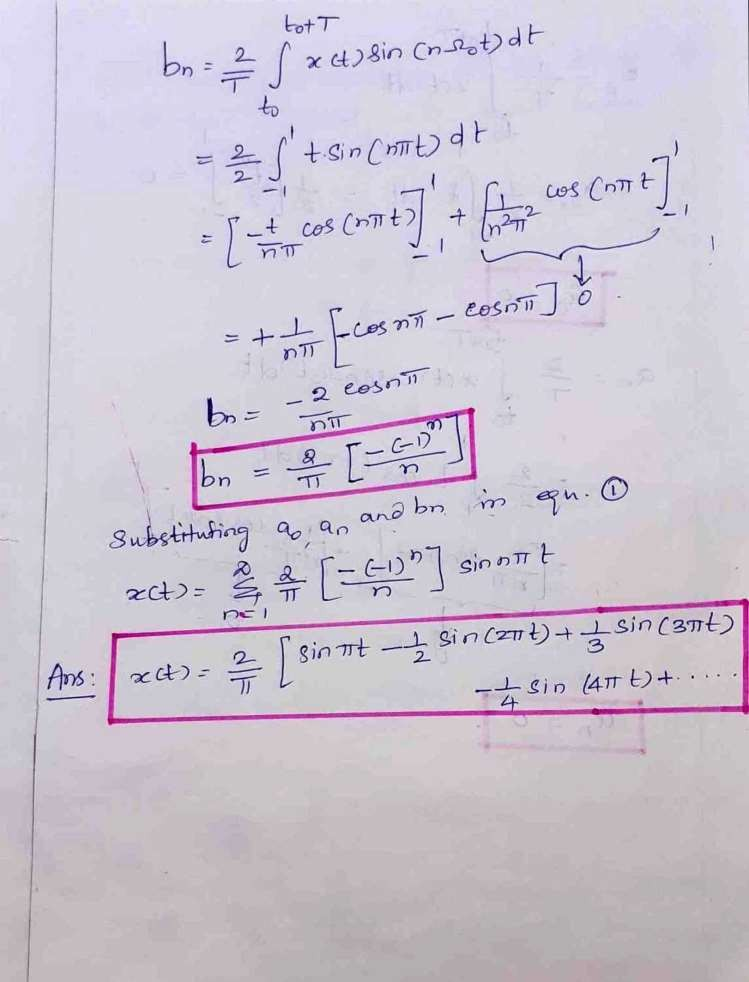 bn = 2/T ∫_{t0}^{t0+T} x(t) sin(nΩ0t) dt
= 2/2 ∫_{-1}^{1} t. sin(nπt) dt
= [-t/nπ cos(nπt)]_{-1}^{1} + [1/n²π² cos(nπt]_{-1}^{1}
↓ 0
= + 1/nπ [-cos nπ - cos nπ]
bn = -2 cos nπ / nπ
bn = 2/π [-(-1)^n / n]
Substituting a0, an and bn in eqn. ①
x(t) = ∑_{n=1}^{∞} 2/π [-(-1)^n / n] sin nπt
Ans: x(t) = 2/π [sin πt - 1/2 sin(2πt) + 1/3 sin(3πt)
- 1/4 sin(4πt) + .....